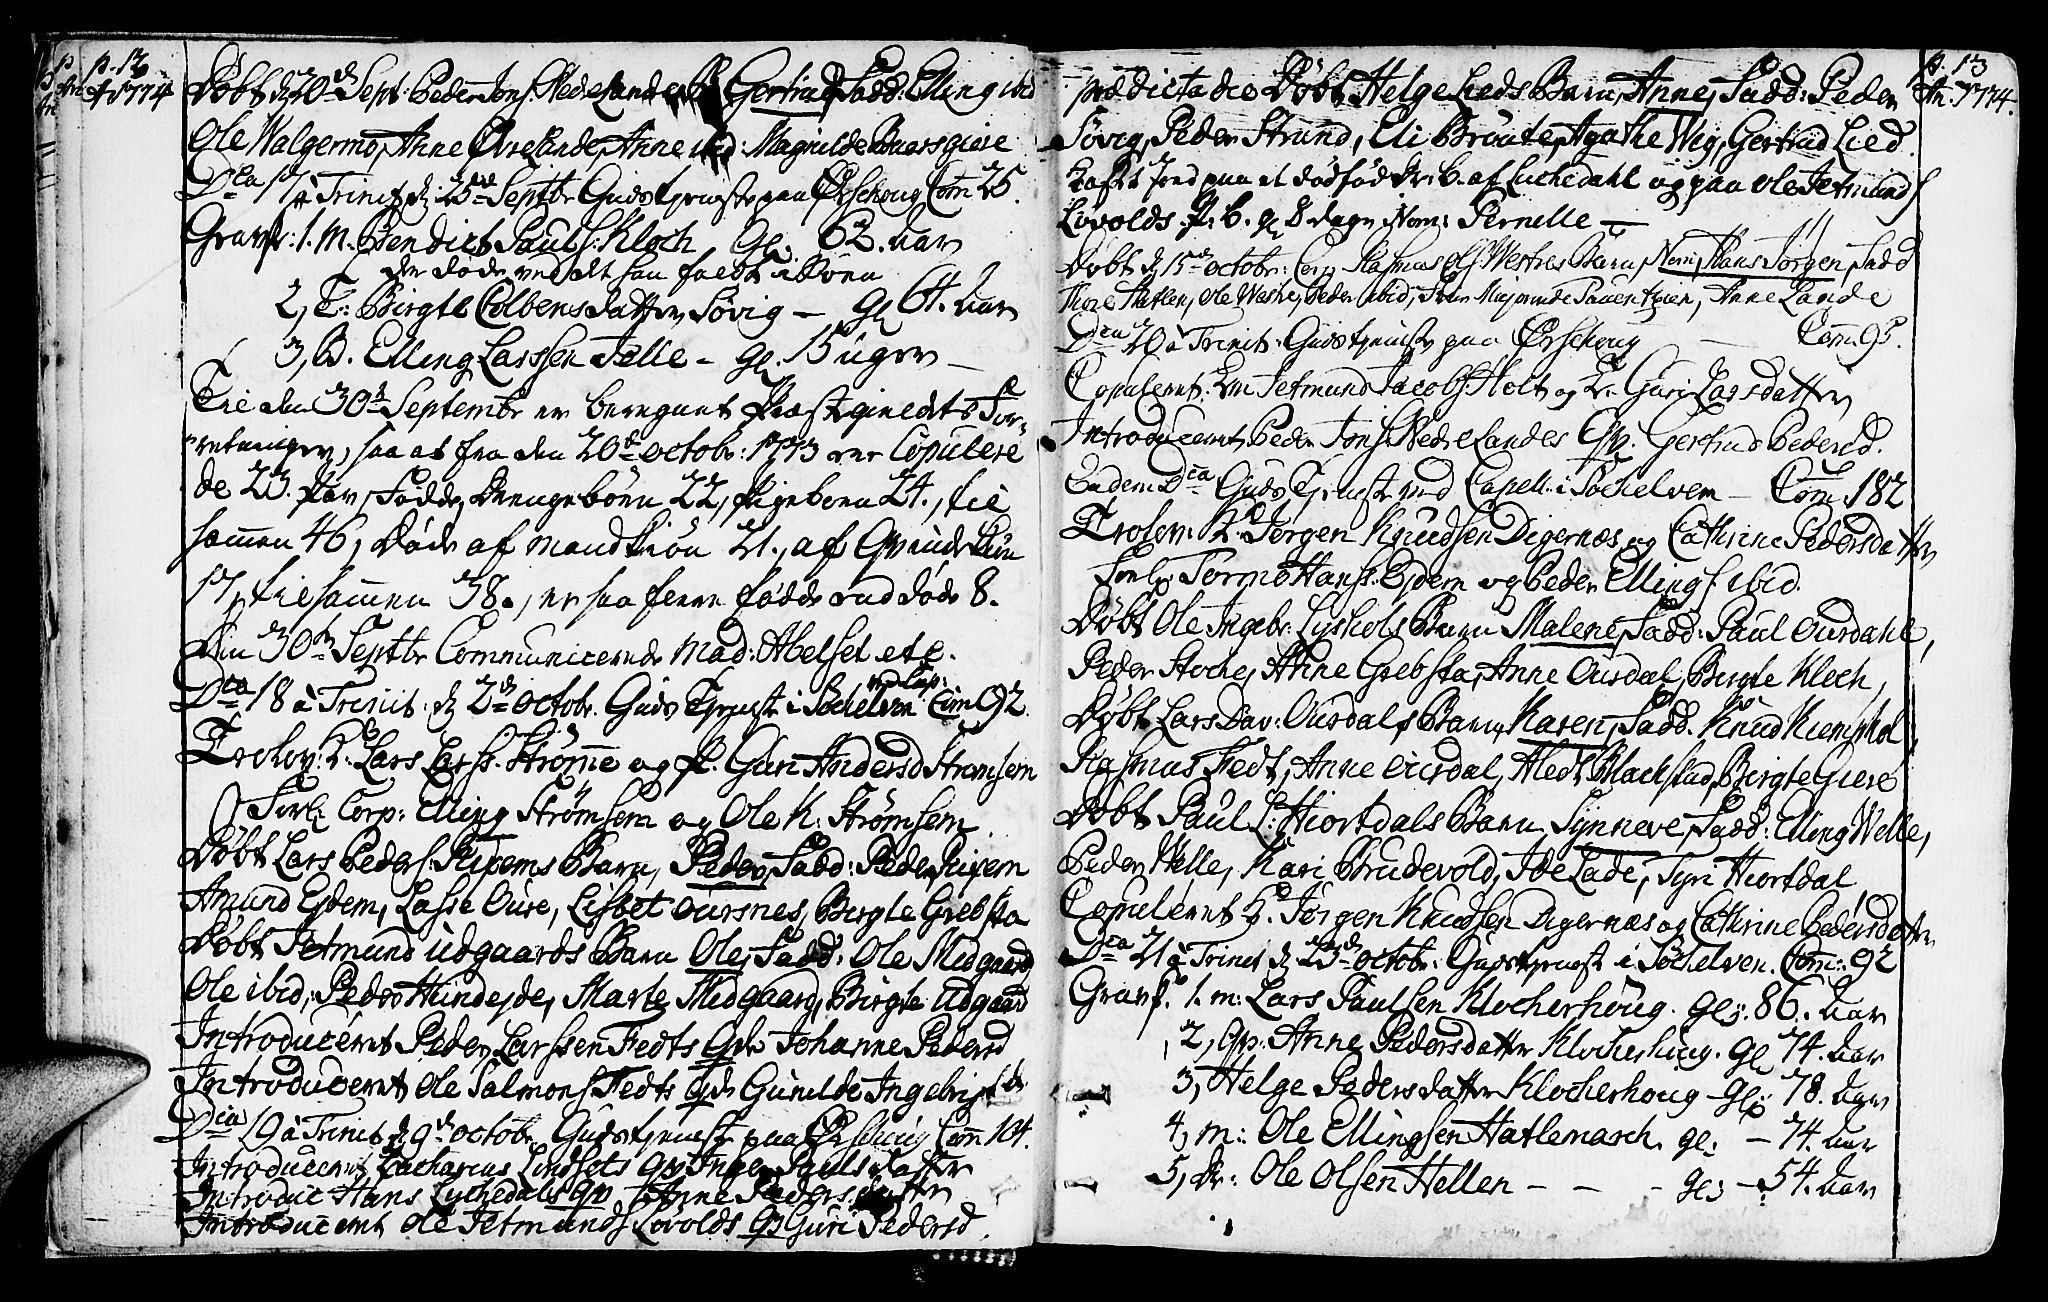 p. 12
An 1774
Døbt d 20d Sept: Peder Jons: Nedrelandes B. Gertrud, Fadd: Elling ibid
Ole Walgermo, Anne Øvrelande, Anne ibid: Magnilde Baarsgiere
Dca 17 à Trinit d: 25de Septbr Guds tjeneste paa Ørschoug Com 25.
Gravf: 1. M. Bendict Pauls: Kloch, gl: 62. aar
der døde ved det han faldt i Søen
2, E: Birgte Colbensdatter Søvig — gl 64. aar
3, B. Elling Larssen Felle — gl. 15 uger —
Til den 30te Septembr er beregnet Præstegieldets For-
retninger, saa at fra den 20de octobr: 1773 ere Copulere
de 23. Par, Fødde Drengebørn 22, Pigebørn 24., til
sammen 46, døde af Mandkiøn 21., af Qvindekiøn
17, tilsammen 38., er saa flere fødde end døde 8.
Den 30te Septbr Communicerede Mad: Abelset etc.
Dca 18 à Trinit: d 2de octobr. Guds tjenest i Søchelven ved Cap: Com 92
Trolov: K: Lars Larss. Strømme og P. Guri Andersd Strømsem
Forl: Corp: Elling Strømsem og Ole K. Strømsem
Døbt Lars Peders: Ripems Barn, Peder, Fadd: Peder Ripem
Amund Eidem, Lasse Oure, Lisbet Oursnes, Birgte Grebsta
Døbt Jetmund Udgaards Barn Ole, Fadd: Ole Midgaard
Ole ibid, Peder Hundejde, Marte Midgaard, Birgte Udgaard
Introduceret Peder Larssen Fedts Qv Johanne Pedersd
Introduceret Ole Salmons: Fedts Qv Gunilde Ingebrigtsdr
Dca 19 à Trinit d 9de octobr Gudstjeneste paa Ørschoug Com 104.
Introduceret Zacharias Lindsets Qv Inger Paulsdatter
Introduc Hans Lychedals Qv Anne Pedersdatter
Introduceret Ole Jetmunds Lovolds Qv Guri Pedersd.
p. 13
An. 1774.
prædicta die Døbt Helge Lieds Barn, Anne, Fadd: Peder
Søvig, Peder Strand, Eli Broute, Agathe Wig, Gertrud Lied.
Kast Jord paa et dødfød Dr: b. af Luchedahl og paa Ole Jetmunds
Lovolds P: b. gl 8 dage Nom: Pernelle —
Døbt d 15de octobr: Corp Rasmus Ols: Westres Barn, Nom: Hans Jørgen, Fadd
Thore Hatlen, Ole Washe, Peder ibid, Anne Lande
Dca 20 à Trinit: Guds tjeneste paa Ørschoug — Com 95.
Copuleret: Em Jetmund Jacobs: Holt og E. Guri Larsdatter
Introduceret Peder Jons: Nedrelandes Qv. Gertrud Pedersd.
Eadem Dca Guds Tjeneste ved Capell: i Søchelven — Com 182
Trolov: K: Jørgen Knudsen Digernæs og Cathrine Pedersdatter
Forl: Tormo Hanss: Ejdem og Peder Ellings: ibid.
Døbt Ole Ingebr: Lyshols Barn Malene, Fadd: Paul Ourdahl,
Peder Stoche, Anne Grebsta, Anne Ourdal, Birgte Kloch,
Døbt Lars Dav: Ourdals Barn, Karen, Fadd. Knud Kiemphol
Rasmus Fedt, Anne Ourdal, Aledt Blachstad, Birgte Giere
Døbt Paul L: Hiortdals Barn Synneve, Fadd: Elling Welle,
Peder Welle, Kari Brudevold, Ide Lade, Syri Hiortdal
Copuleret K: Jørgen Knudsen Digernæs og Cathrine Pedersdatter
Dca 21 à Trinit d 23de octobr: Gudstjenest i Søchelven. Com: 92
Gravf: 1. m: Lars Paulsen Klocherhoug. gl: 86. aar
2, Qv: Anne Pedersdatter Klocherhoug. gl 74. aar
3, Helge Pedersdatter Klocherhoug gl: 78. aar
4, m: Ole Ellingsen Hatlemarch. gl: — 74. aar
5, Dr: Ole Olsen Hellen — — — gl: — 54. aar